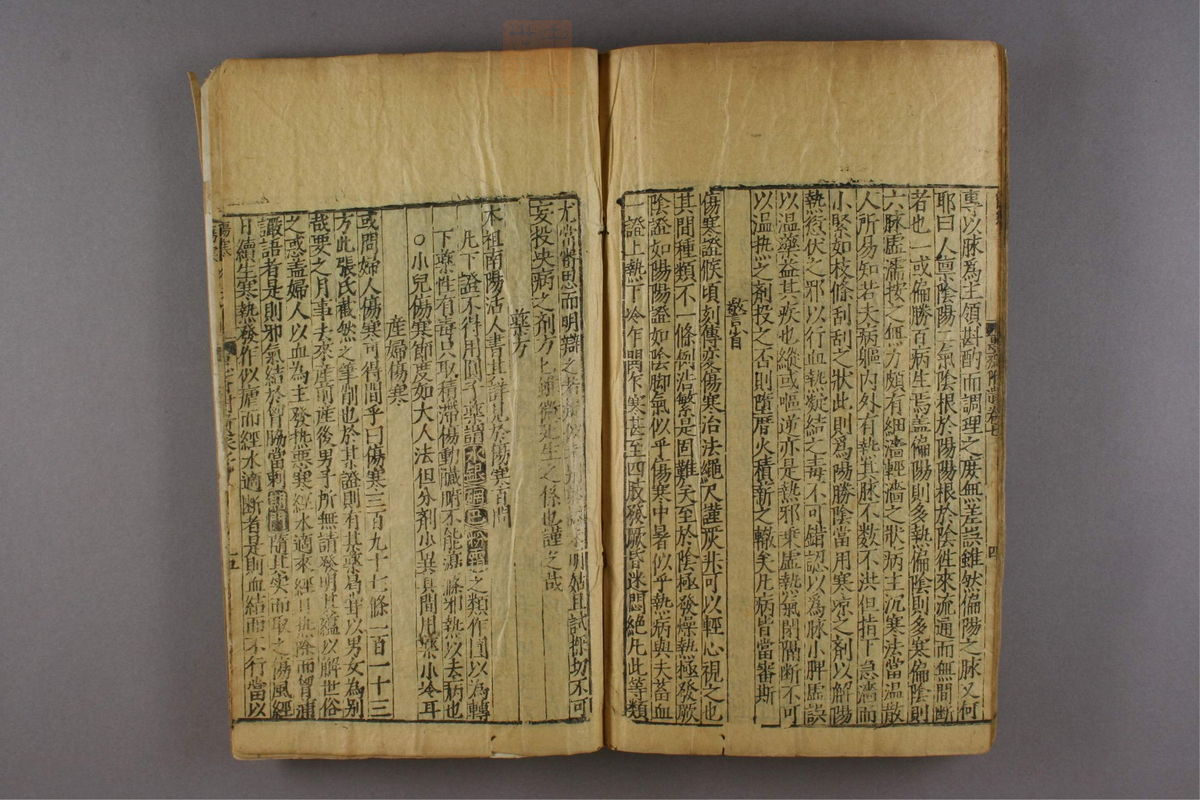 專以脉為主領斟酌而調理之度無差誤雖然偏陽之脉又何
耶曰人禀陰陽二氣陰根於陽陽根於陰往來流通而無間断
者也一或偏勝百病生焉盖偏陽則多熱偏陰則多寒偏陰則
六脉虛濡按之無力頗有細濇輕濇之狀病主沉寒法當温散
人所易知若夫病軀内外有熱其脉不数不洪但指下急濇而
小緊如枝條刮刮之狀此則爲陽勝陰當用寒凉之剂以解陽
熱後伏之邪以行血熱凝结之毒不可錯認以爲脉小脾虛誤
以温藥益其疾也縱或嘔逆亦是熱邪乗虛熱氣閉隔斷不可
以温热之剤投之否則隨曆火積薪之轍矣凡病皆當審斯
傷寒證候頃刻傳变傷寒治法䋲尺謹嚴非可以輕心視之也
其間種類不一條例浩繁是固難矣至於陰極發燥熱極發厥
陰證如陽陽證如陰脚氣似乎傷寒中暑似乎熱病與夫蓄血
一證上熱下冷作悶乍寒甚至四肢發厥昏迷悶絶凡此等類
尤當審思而明辯之 明姑且試探切不可
妄投决病之剂方匕雖微死生之係也謹之哉
藥方
本祖南陽活人書其詳見於傷寒百問
凡下證不得用圓子藥謂水 巴 之類作圓以為轉
下藥性有毒只取積滯傷動臓腑不能滌除邪熱以去病也
○小兒傷寒節度如大人法但分剂小異見間用藥小冷耳
産婦傷寒
或問婦人傷寒可得間乎曰傷寒三百九十七條一百一十三
方此張氏截然之筆削也於某證則有某藥曷嘗以男女為别
哉要之月事去來産前産後男子所無請發明其蘊以解世俗
之惑盖婦人以血為主發热悪寒經水適來經日热除而胷滿
讝語者是則邪氣結於胷脇當刺 隨其实而取之傷風經
日續生寒熱發作似瘧而經水適断者是則血結而不行當以